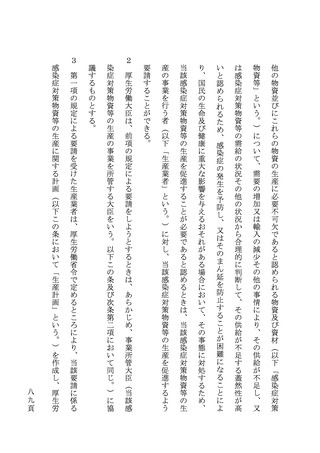 他の物資並びにこれらの物資の生産に必要不可欠であると認められる物資及び資材（以下「感染症対策
物資等」という。）について、需要の増加又は輸入の減少その他の事情により、その供給が不足し、又
は感染症対策物資等の需給の状況その他の状況から合理的に判断して、その供給が不足する蓋然性が高
いと認められるため、感染症の発生を予防し、又はそのまん延を防止することが困難になることによ
り、国民の生命及び健康に重大な影響を与えるおそれがある場合において、その事態に対処するため、
当該感染症対策物資等の生産を促進することが必要であると認めるときは、当該感染症対策物資等の生
産の事業を行う者（以下「生産業者」という。）に対し、当該感染症対策物資等の生産を促進するよう
要請することができる。
２　厚生労働大臣は、前項の規定による要請をしようとするときは、あらかじめ、事業所管大臣（当該感
染症対策物資等の生産の事業を所管する大臣をいう。以下この条及び次条第二項において同じ。）に協
議するものとする。
３　第一項の規定による要請を受けた生産業者は、厚生労働省令で定めるところにより、当該要請に係る
感染症対策物資等の生産に関する計画（以下この条において「生産計画」という。）を作成し、厚生労
八九頁